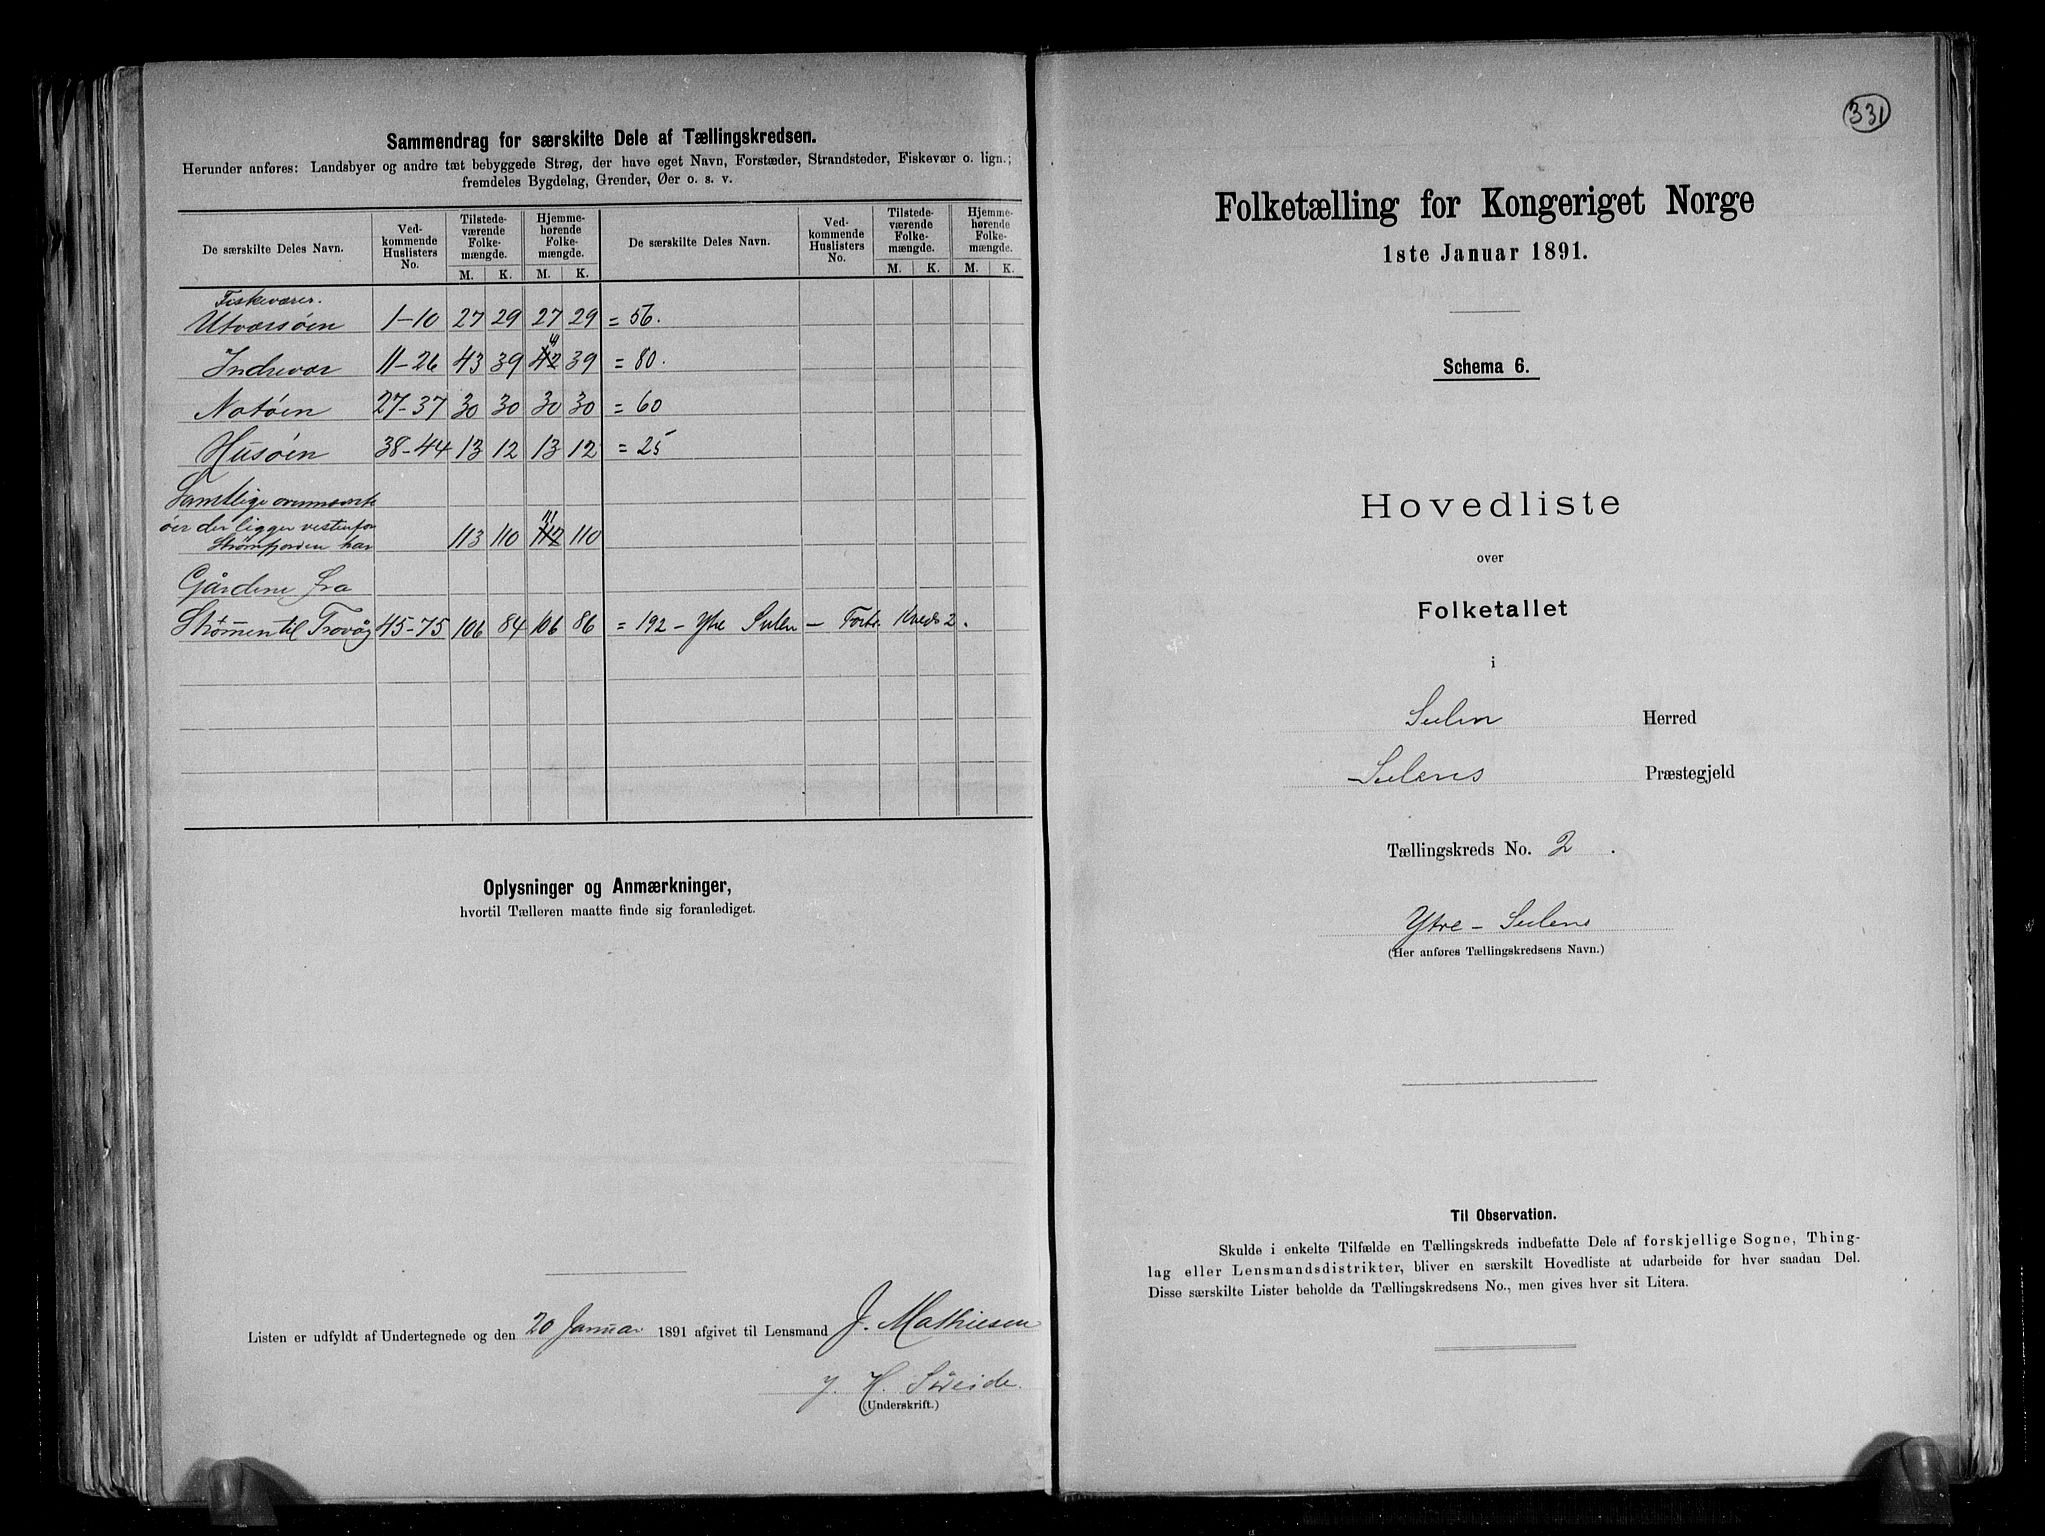 Sammendrag for særskilte Dele af Tællingskredsen.
Herunder anføres: Landsbyer og andre tæt bebyggede Strøg, der have eget Navn, Forstæder, Strandsteder, Fiskevær o. lign.;
fremdeles Bygdelag, Grender, Øer o. s. v.
De særskilte Deles Navn. Ved-kommende Huslisters No. Tilstede-værende Folke-mængde. M. K. Hjemme-hørende Folke-mængde. M. K. De særskilte Deles Navn. Ved-kommende Huslisters No. Tilstede-værende Folke-mængde. M. K. Hjemme-hørende Folke-mængde. M. K.
Fiskeværer.
Utværsøen 1-10 27 29 27 29 = 56.
Indrevær 11-26 43 39 42 41 39 = 80.
Notøen 27-37 30 30 30 30 = 60
Husøen 38-44 13 12 13 12 = 25
Samtlige ovennævnte
öer der ligger vestenfor
Strømfjorden har 113 110 112 111 110
Gårdene fra
Strømmen til Trovåg 45-75 106 84 106 86 = 192 - Ytre Sulen - Kreds 2.
Oplysninger og Anmærkninger,
hvortil Tælleren maatte finde sig foranlediget.
Listen er udfyldt af Undertegnede og den 20 Januar 1891 afgivet til Lensmand J. Mathiesen
H. Søreide.
(Underskrift.)
331
Folketælling for Kongeriget Norge
1ste Januar 1891.
Schema 6.
Hovedliste
over
Folketallet
i
Sulen Herred
Sulens Præstegjeld
Tællingskreds No. 2 .
Ytre-Sulens
(Her anføres Tællingskredsens Navn.)
Til Observation.
Skulde i enkelte Tilfælde en Tællingskreds indbefatte Dele af forskjellige Sogne, Thing-
lag eller Lensmandsdistrikter, bliver en særskilt Hovedliste at udarbeide for hver saadan Del.
Disse særskilte Lister beholde da Tællingskredsens No., men gives hver sit Litera.